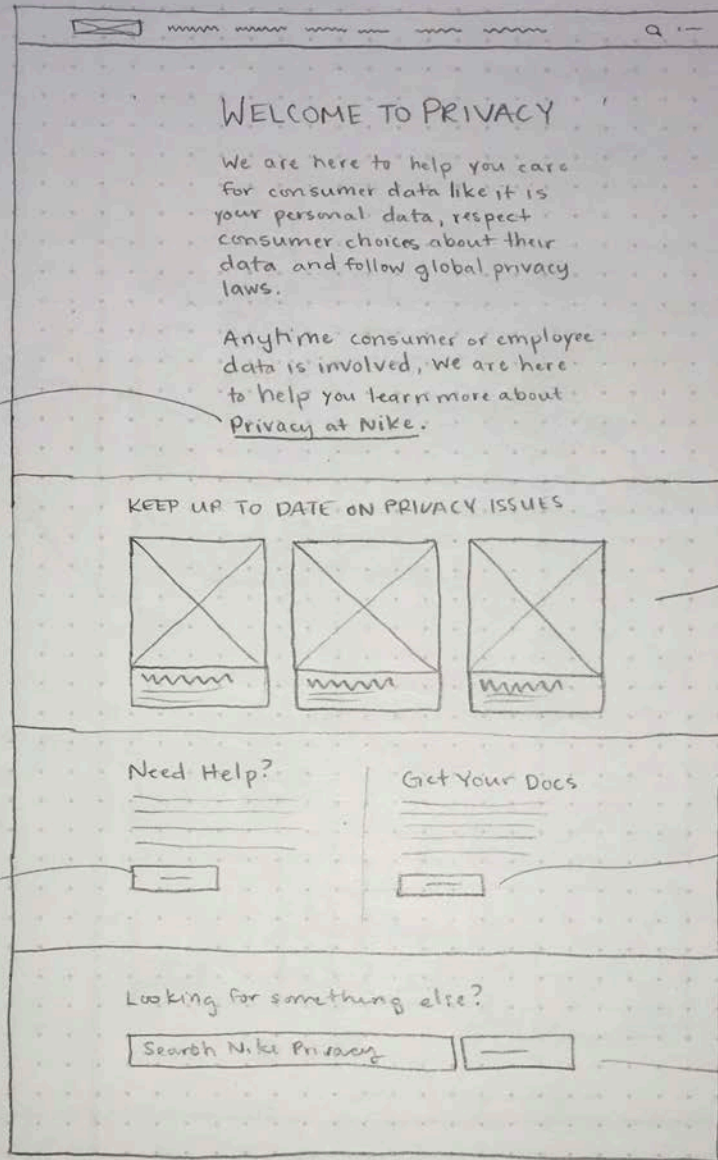 WELCOME TO PRIVACY
We are here to help you care
for consumer data like it is
your personal data, respect
consumer choices about their
data and follow global privacy
laws.
Anytime consumer or employee
data is involved, we are here
to help you learn more about
Privacy at Nike.
KEEP UP TO DATE ON PRIVACY ISSUES
Need Help?
Get Your Docs
Looking for something else?
Search Nike Privacy